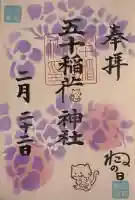 奉拝
五十稲荷神社
二月二十二日
ねの日